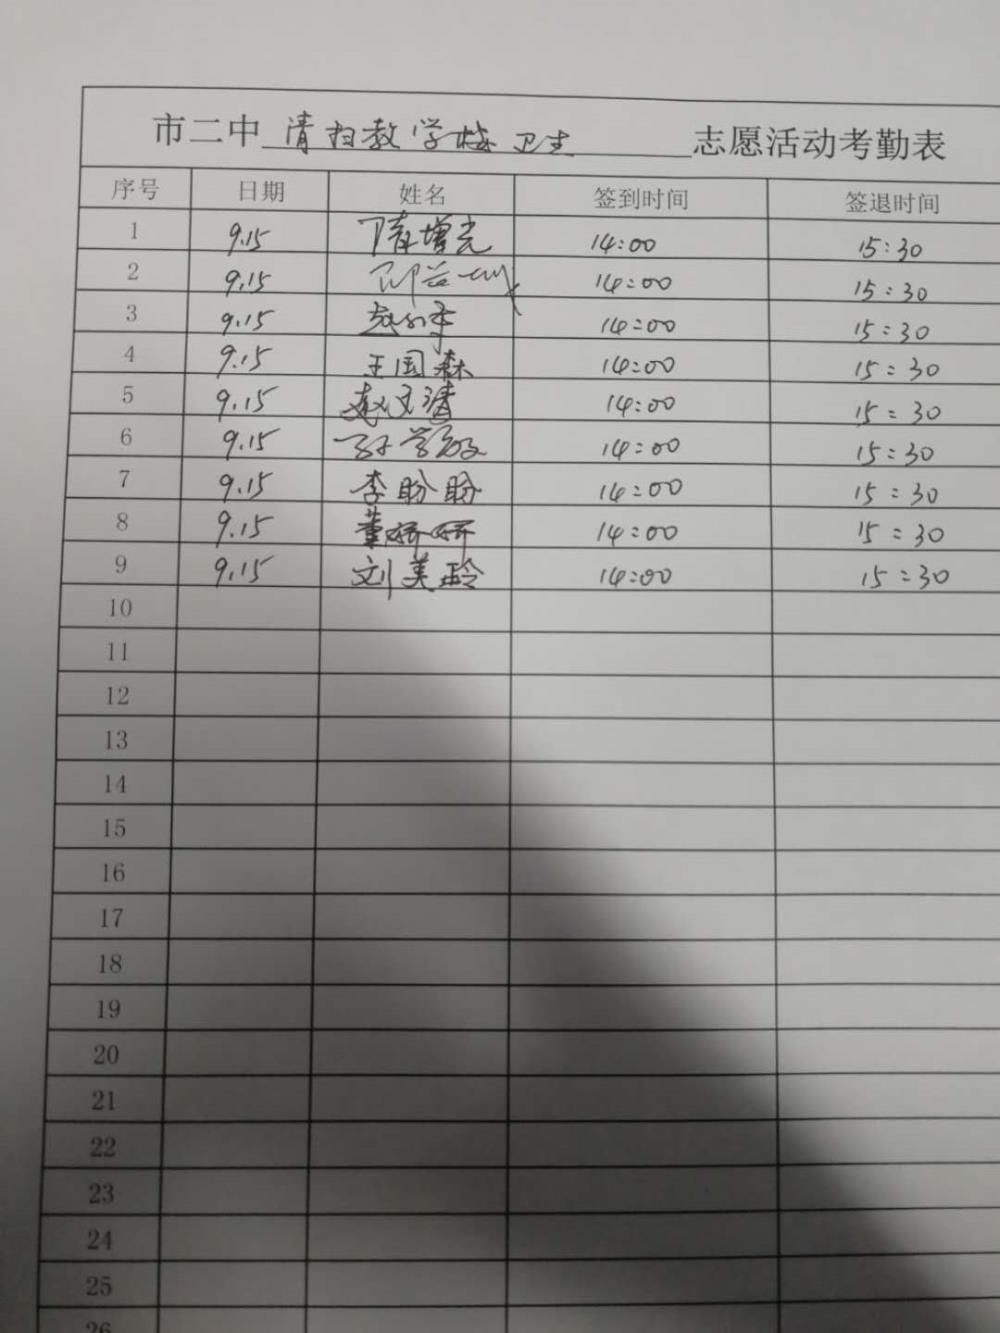 市二中 清扫教学楼卫生 志愿活动考勤表
序号 日期 姓名 签到时间 签退时间
1 9.15 隋增光 14:00 15:30
2 9.15 14:00 15:30
3 9.15 14:00 15:30
4 9.15 王国森 14:00 15:30
5 9.15 赵文清 14:00 15:30
6 9.15 14:00 15:30
7 9.15 李盼盼 14:00 15:30
8 9.15 董妍妍 14:00 15:30
9 9.15 刘美玲 14:00 15:30
10
11
12
13
14
15
16
17
18
19
20
21
22
23
24
25
26